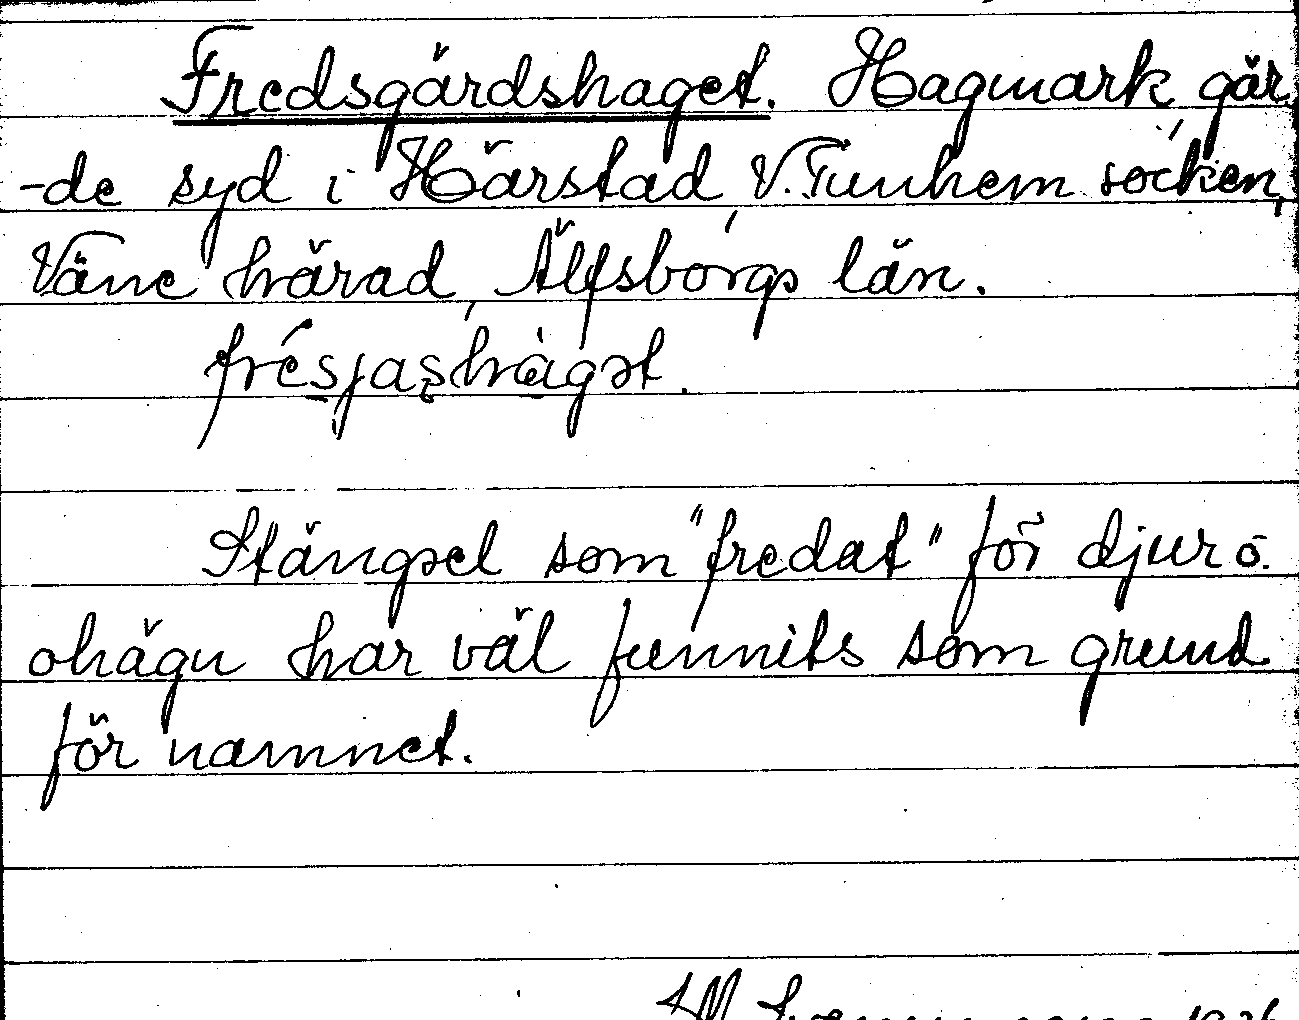 Fredsgårdshaget. Hagmark gär
-de syd i Hårstad, V. Tunhem socken,
Väne härad, Älfsborgs län.
frésjashàgət.
Stängsel som "fredat" för djur o.
ohägn har väl funnits som grund
för namnet.